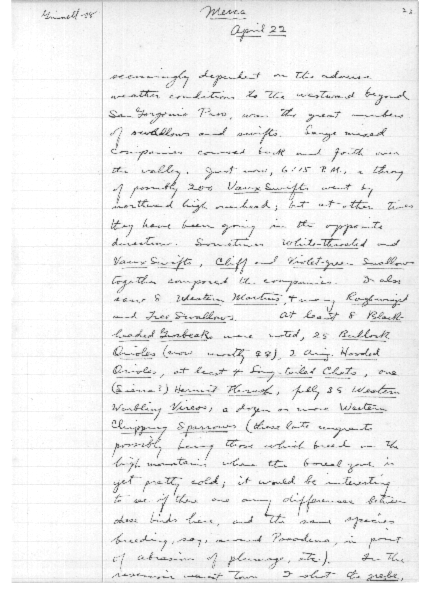 Grinnell-08
Mecca
23
April 22
seemingly dependent on the adverse
weather conditions to the westward beyond
San Gorgonio Pass, was the great numbers
of swallows and swifts. Large mixed
companies coursed back and forth over
the valley. Just now, 6:15 P.M., a throng
of possibly 200 Vaux Swifts went by
northward high overhead; but at other times
they have been going in the opposite
direction. Sometimes White-throated and
Vaux Swifts, Cliff and Violet-green Swallows
together composed the companies. I also
saw 8 Western Martins, & many Rough-winged
and Tree Swallows. At least 8 Black-
headed Grosbeaks were noted, 25 Bullock
Orioles (now mostly ♀♀), 2 Ariz. Hooded
Orioles, at least 4 Long-tailed Chats, one
(Sierra?) Hermit Thrush, fully 35 Western
Warbling Vireos, a dozen or more Western
Chipping Sparrows (these late migrants
possibly being those which breed in the
high mountains where the boreal zone is
yet pretty cold; it would be interesting
to see if there are any differences between
these birds here, and the same species
breeding, say, around Pasadena, in point
of abrasion of plumage, etc.). In the
reservoir west town I shot the grebe,